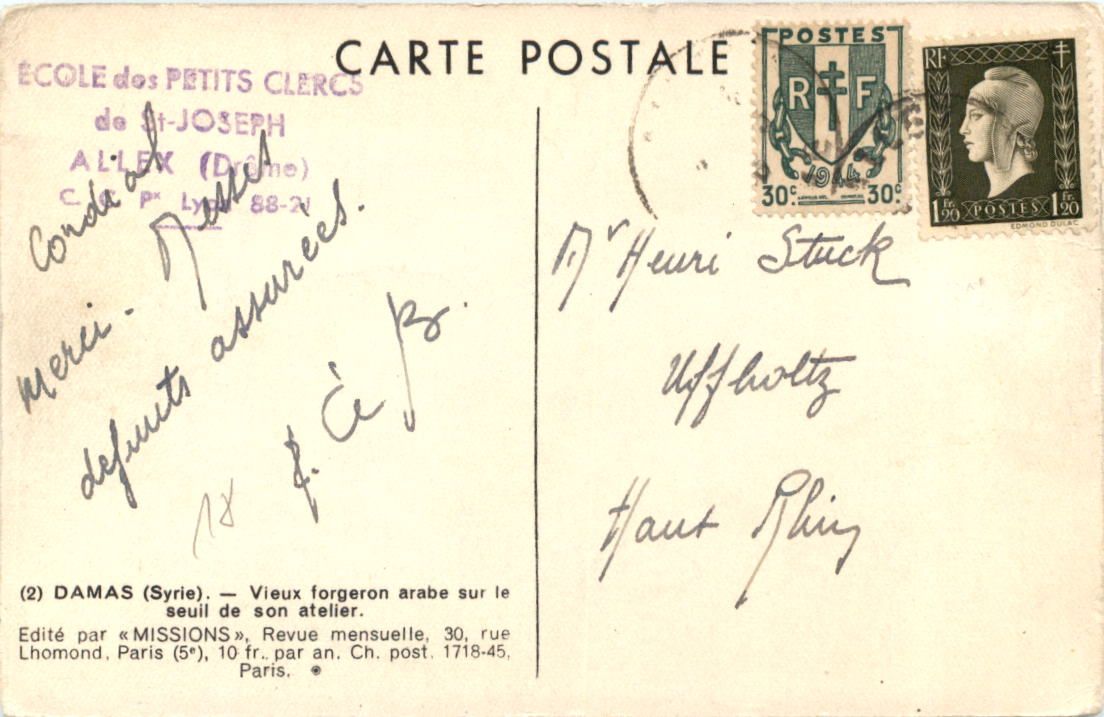 CARTE POSTALE
ÉCOLE des PETITS CLERCS
de St-JOSEPH
ALLEX (Drôme)
C. C. Px Lyon 88-21
Cordial
merci. Messes
défunts assurées.
18
(2) DAMAS (Syrie). — Vieux forgeron arabe sur le
seuil de son atelier.
Edité par «MISSIONS», Revue mensuelle, 30, rue
Lhomond, Paris (5e), 10 fr. par an. Ch. post. 1718-45,
Paris.
POSTES
R F
1944
30c 30c
RF
1Fr.20 POSTES 1Fr.20
EDMOND DULAC
Mr Henri Stuck
Uffholtz
Haut Rhin